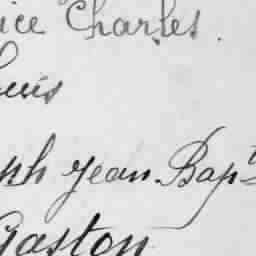 ice Charles.
ouis
ph Jean Bapt
Gaston